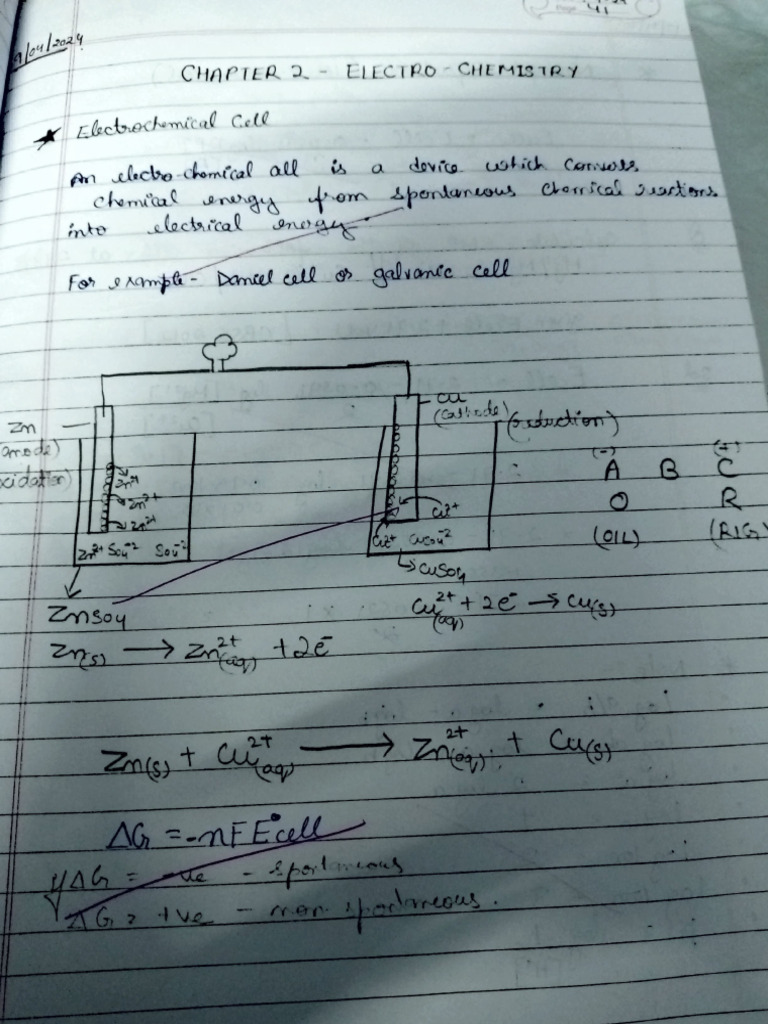 9/04/2024
CHAPTER 2 - ELECTRO-CHEMISTRY
★ Electrochemical Cell
An electro-chemical all is a device which converts
chemical energy from spontaneous chemical reactions
into electrical energy.
For example - Daniel cell or galvanic cell
Zn
(anode)
oxidation)
Cu
(cathode) (reduction)
Zn²⁺
Zn²⁺
Zn²⁺
Zn²⁺ SO₄⁻² SO₄⁻²
Cu²⁺
Cu²⁺ CuSO₄⁻²
ZnSO₄
CuSO₄
(-) (+)
A B C
O R
(OIL) (RIG)
Cu²⁺(aq) + 2e⁻ → Cu(s)
Zn(s) → Zn²⁺(aq) + 2e⁻
Zn(s) + Cu²⁺(aq) → Zn²⁺(aq) + Cu(s)
ΔG = -nFE°cell
y ΔG = -ve - spontaneous
ΔG = +ve - non spontaneous.